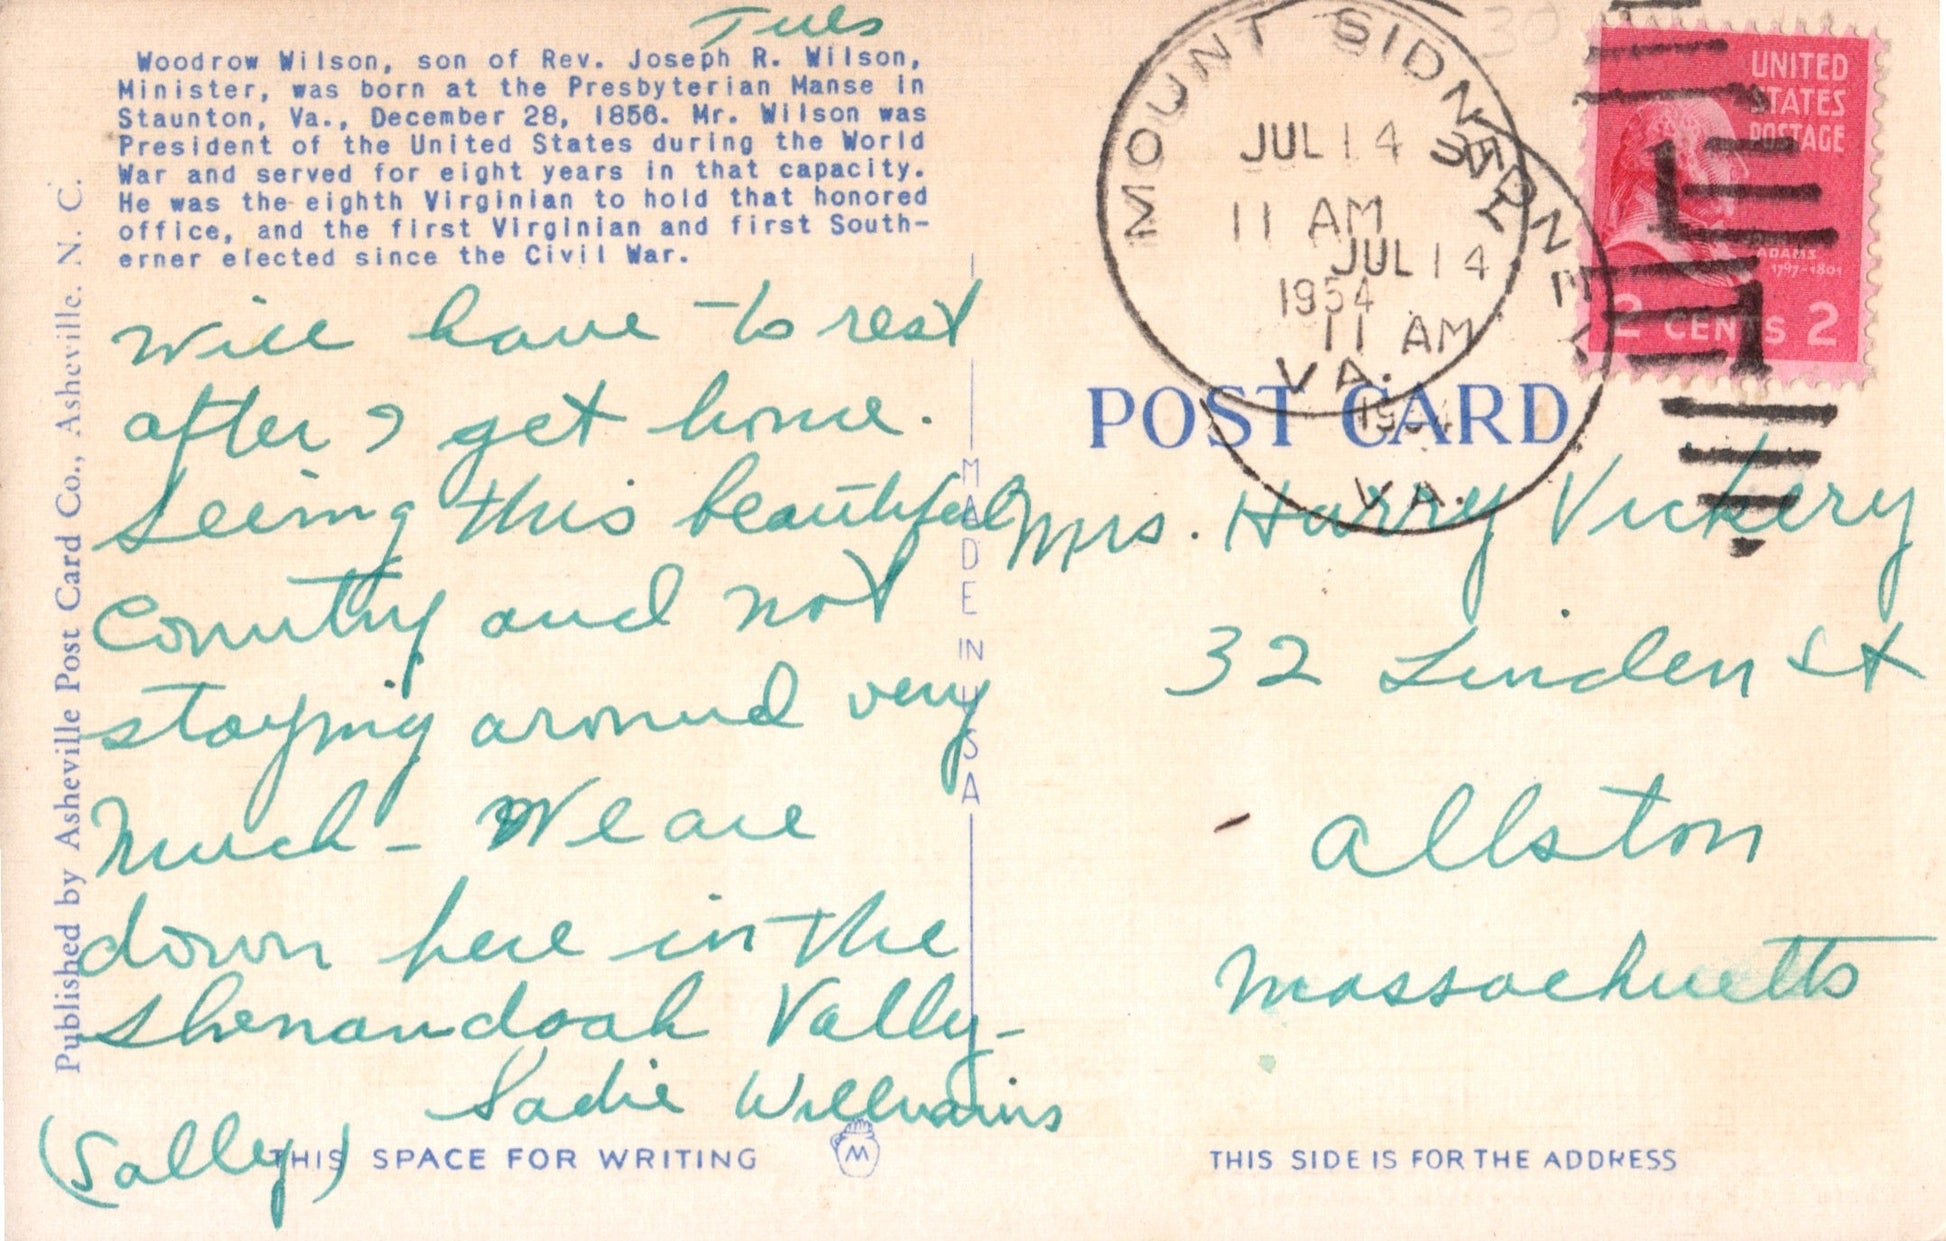 Tues
Woodrow Wilson, son of Rev. Joseph R. Wilson,
Minister, was born at the Presbyterian Manse in
Staunton, Va., December 28, 1856. Mr. Wilson was
President of the United States during the World
War and served for eight years in that capacity.
He was the eighth Virginian to hold that honored
office, and the first Virginian and first South-
erner elected since the Civil War.
Will have to rest
after I get home.
Seeing this beautiful
Country and not
staying around very
much - We are
down here in the
Shenandoah Vally -
Sadie Williams
(Sally)
THIS SPACE FOR WRITING
M
Published by Asheville Post Card Co., Asheville, N. C.
MADE IN USA
MOUNT SIDNEY
JUL 14
11 AM
1954
VA.
SIDNEY
JUL 14
11 AM
1954
VA.
UNITED
STATES
POSTAGE
ADAMS
1797-1801
2 CENTS 2
POST CARD
Mrs. Harry Vickery
32 Linden St
Allston
Massachuetts
THIS SIDE IS FOR THE ADDRESS
30